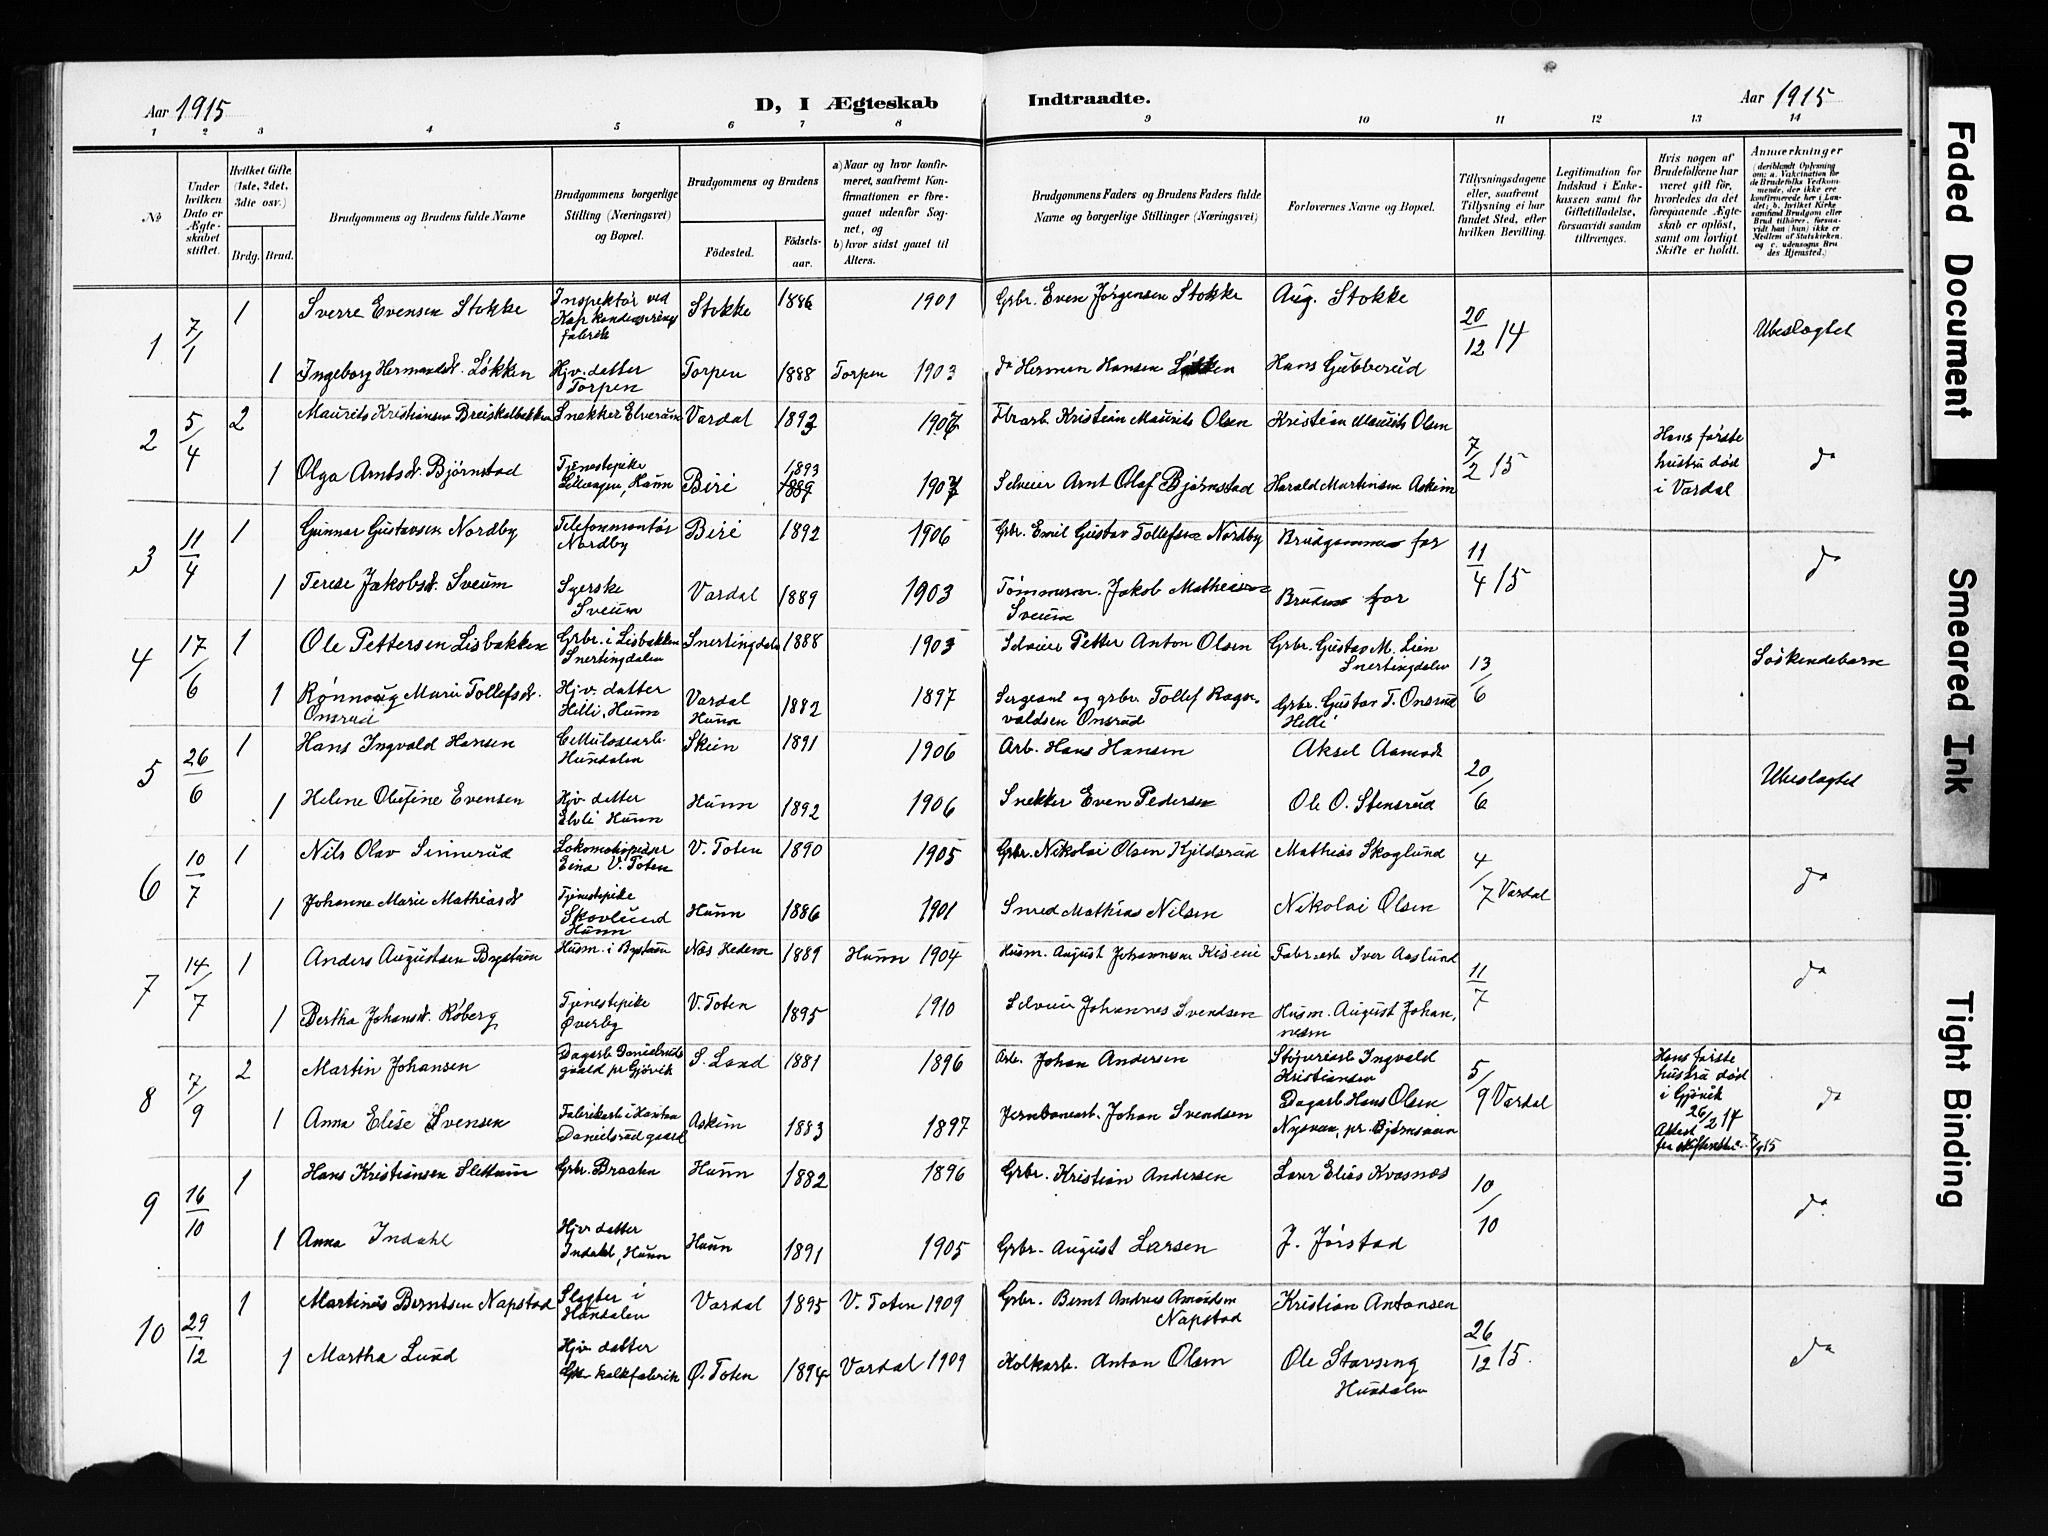 Aar 1915 D, I Ægteskab Indtraadte. Aar 1915
1 2 3 4 5 6 7 8 9 10 11 12 13 14
No
Under hvilken Dato er Ægteskabet stiftet.
Hvilket Gifte (1ste, 2det, 3die osv.)
Brdg. Brud.
Brudgommens og Brudens fulde Navne
Brudgommens borgerlige Stilling (Næringsvei) og Bopæl.
Brudgommens og Brudens
Fødested.
Fødselsaar.
a) Naar og hvor konfirmeret, saafremt Konfirmationen er foregaaet udenfor Sognet, og
b) hvor sidst gaaet til Alters.
Brudgommens Faders og Brudens Faders fulde Navne og borgerlige Stillinger (Næringsvei)
Forlovernes Navne og Bopæl.
Tillysningsdagene eller, saafremt Tillysning ei har fundet Sted, efter hvilken Bevilling.
Legitimation for Indskud i Enkekassen samt for Giftetilladelse, forsaavidt saadan tiltrænges.
Hvis nogen af Brudefolkene har været gift før, hvorledes da det foregaaende Ægteskab er opløst, samt om lovligt Skifte er holdt.
Anmærkninger
(deriblandt Oplysning om: a. Vakcination for de Brudefolks Vedkommende, der ikke ere konfirmerede her i Landet; b. hvilket Kirkesamfund Brudgom eller Brud tilhører, forsaavidt han (hun) ikke er Medlem af Statskirken, og c. udensogns Brudes Hjemsted.)
1 7/1 1 Sverre Evensen Stokke Inspektør ved Kap kondenserings fabrik Stokke 1886 1901 Grbr. Even Jørgensen Stokke Aug. Stokke 20/12 14 Ubeslegtet
1 Ingeborg Hermansdr. Løkken Hjv. datter Torpen Torpen 1888 Torpen 1903 do Herman Hansen Løkken Hans Gubberud
2 5/4 2 Maurits Kristiansen Breiskalbakken Snekker Elverum Vardal 1893 1907 Fbrarb. Kristian Maurits Olsen Kristian Maurits Olsen 7/2 15 Hans første hustru død i Vardal do
1 Olga Arntsdr. Bjørnstad Tjenestepike Hunn Biri 1893 1889 1907 Selveier Arnt Olaf Bjørnstad Harald Martinsen Askim
3 11/4 1 Gunnar Gustavsen Nordby Telefonmontør Nordby Biri 1892 1906 Grbr. Emil Gustav Tollefsen Nordby Brudgommens far 11/4 15 do
1 Terese Jakobsdr. Sveum Syerske Sveum Vardal 1889 1903 Tømmerm. Jakob Mathiesen Sveum Brudens far
4 17/6 1 Ole Pettersen Lisbakken Grbr. i Lisbakken Snertingdalen Snertingdalen 1888 1903 Selveier Petter Anton Olsen Grbr. Gustav M. Lien Snertingdalen 13/6 Søskendebarn
1 Rønnaug Marie Tollefsdr. Onsrud Hjv. datter Helli, Hunn Vardal Hunn 1882 1897 Sergeant og grbr. Tollef Ragnvaldsen Onsrud Grbr. Gustav T. Onsrud Helli
5 26/6 1 Hans Ingvald Hansen Cellulosearb. Hundalen Skien 1891 1906 Arb. Hans Hansen Aksel Aamodt 20/6 Ubeslegtet
1 Helene Olefine Evensen Hjv. datter Hunn Hunn 1892 1906 Snekker Even Pedersen Ole O. Stensrud
6 10/7 1 Nils Olav Sinnerud Lokomotivpudser Eina V. Toten V. Toten 1890 1905 Grbr. Nikolai Olsen Kjeldsrud Mathias Skoglund 4/7 Vardal do
1 Johanne Marie Mathiasdr Tjenestepike Skovlund Hunn Hunn 1886 1901 Smed Mathias Nilsen Nikolai Olsen
7 14/7 1 Anders Augustsen Bystuen Husm. i Bystuen Nes Hedem 1889 Hunn 1904 Husm. August Johannesen Fabr.arb. Iver Aaslund 11/7 do
1 Bertha Johansdr. Roberg Tjenestepike Øverby V. Toten 1895 1910 Selveier Johannes Svendsen Husm. August Johannesen
8 7/9 2 Martin Johansen Dagarb. Danielsrudgaard pr Gjøvik S. Land 1881 1896 Arb. Johan Andersen Støperiarb. Ingvald Kristiansen 5/9 Vardal Hans første hustru død i Gjøvik 26/2 14 Attest fra skifteretten 7/9 15 do
1 Anna Elise Svensen Fabrikarb. Danielsrud gaard Askim 1883 1897 Jernbanearb. Johan Svendsen Dagarb. Hans Olsen Nysveen, pr. Bjørnsveen
9 16/10 1 Hans Kristiansen Slettum Grbr. Braaten Hunn 1882 1896 Grbr. Kristian Andersen Lærer Elias Kvasnes 10/10 do
1 Anna Indahl Hjv. datter Indahl, Hunn Hunn 1891 1905 Grbr. August Larsen J. Jørstad
10 29/12 1 Martinius Berntsen Napstad Slagter i Hundalen Vardal 1895 V. Toten 1909 Grbr. Bernt Andreas Amundsen Napstad Kristian Antonsen 26/12 15. do
1 Martha Lund Hjv. datter kalkfabrik Ø. Toten 1894 Vardal 1909 Kalkarb. Anton Olsen Ole Stavseng Hundalen
Faded Document
Smeared Ink
Tight Binding